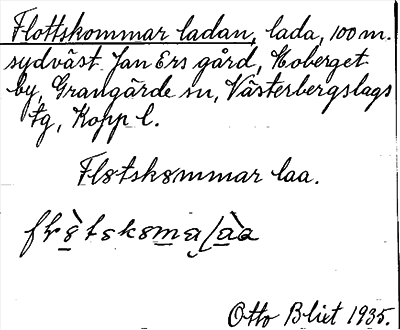 Flottskommar ladan, lada, 100 m.
sydväst Jan Ers gård, Hoberget
by, Grangärde sn, Västerbergslags
tg, Kopp l.
Fløtskømmar laa.
Otto Blixt 1935.